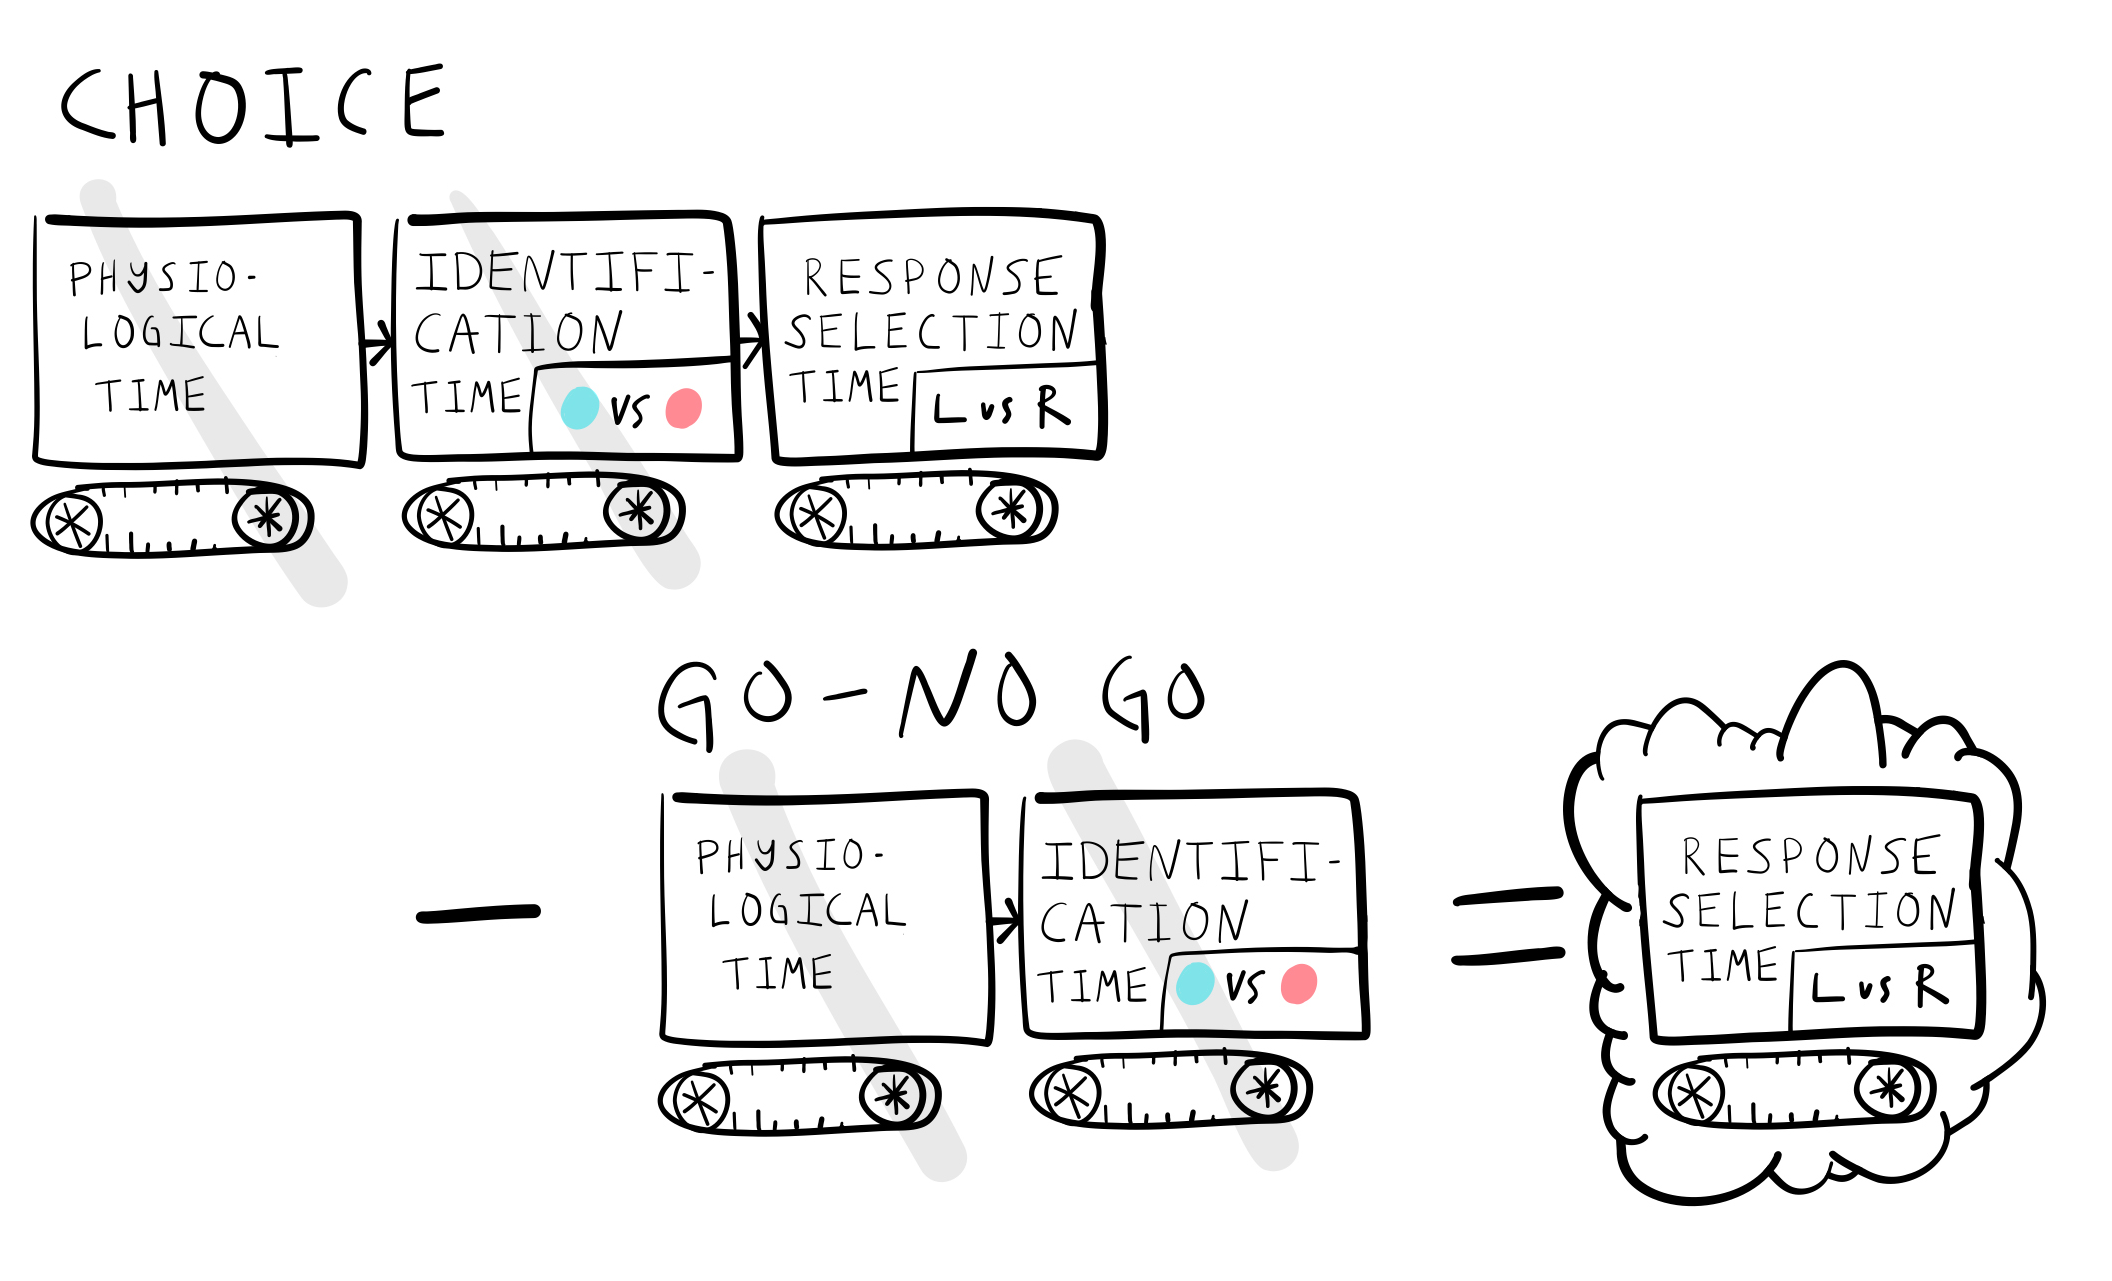 CHOICE
PHYSIO-
LOGICAL
TIME
IDENTIFI-
CATION
TIME
VS
RESPONSE
SELECTION
TIME
L vs R
GO-NO GO
PHYSIO-
LOGICAL
TIME
IDENTIFI-
CATION
TIME
VS
RESPONSE
SELECTION
TIME
L vs R